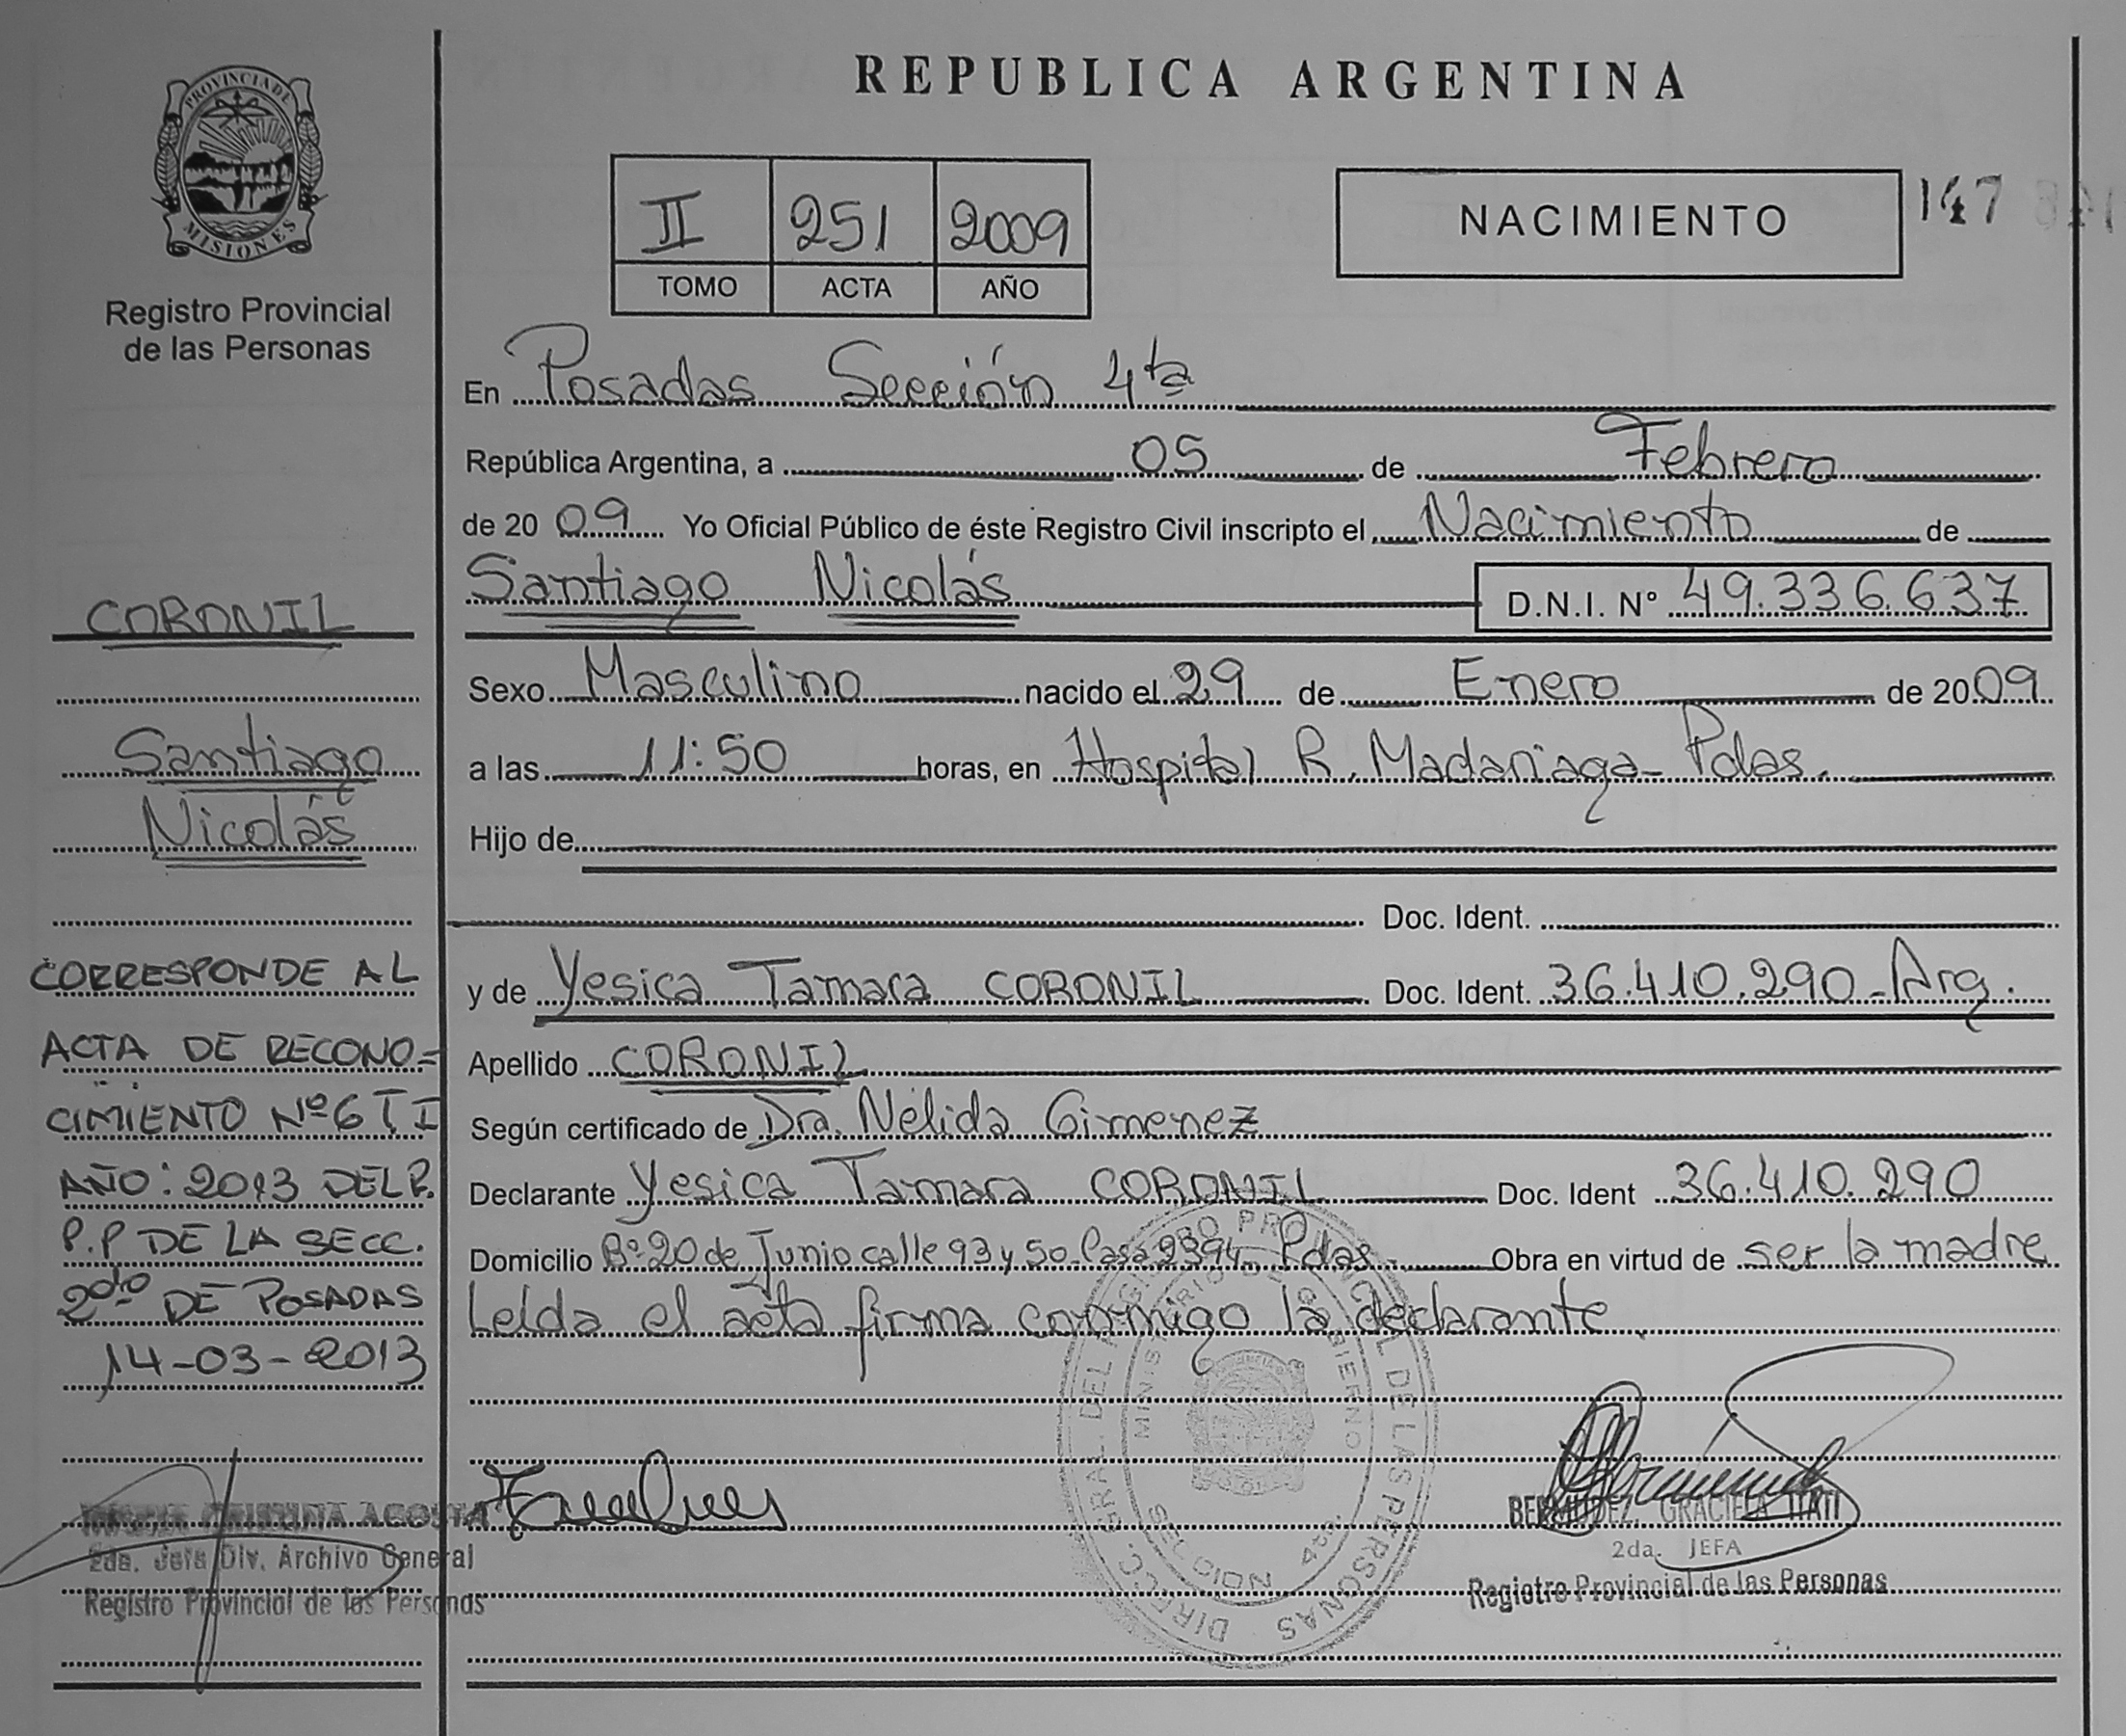 PROVINCIA DE
MISIONES
Registro Provincial
de las Personas
REPUBLICA ARGENTINA
II 251 2009
TOMO ACTA AÑO
NACIMIENTO
147
En Posadas Sección 4ta
República Argentina, a 05 de Febrero
de 20 09 Yo Oficial Público de éste Registro Civil inscripto el Nacimiento de
Santiago Nicolás D.N.I. Nº 49.336.637
Sexo Masculino nacido el 29 de Enero de 20 09
a las 11:50 horas, en Hospital R. Madariaga - Pdas.
Hijo de
Doc. Ident.
y de Yesica Tamara CORONIL Doc. Ident. 36.410.290 - Arg.
Apellido CORONIL
Según certificado de Dra. Nélida Gimenez
Declarante Yesica Tamara CORONIL Doc. Ident 36.410.290
Domicilio Bº 20 de Junio calle 93 y 50. Casa 2394 Pdas. Obra en virtud de ser la madre
Leída el acta firma conmigo la declarante
CORONIL
Santiago
Nicolás
CORRESPONDE AL
ACTA DE RECONO=
CIMIENTO Nº 6 T I
AÑO: 2013 DEL R.
P.P DE LA SECC.
2do DE POSADAS
14-03-2013
CRISTINA ACOSTA
2da. Jefa Div. Archivo General
Registro Provincial de las Personas
DIRECC. GRAL. DEL REGISTRO PROVINCIAL DE LAS PERSONAS
MINISTERIO DE GOBIERNO
SECCION 4ta.
BERMUDEZ, GRACIELA ITATI
2da. JEFA
Registro Provincial de las Personas